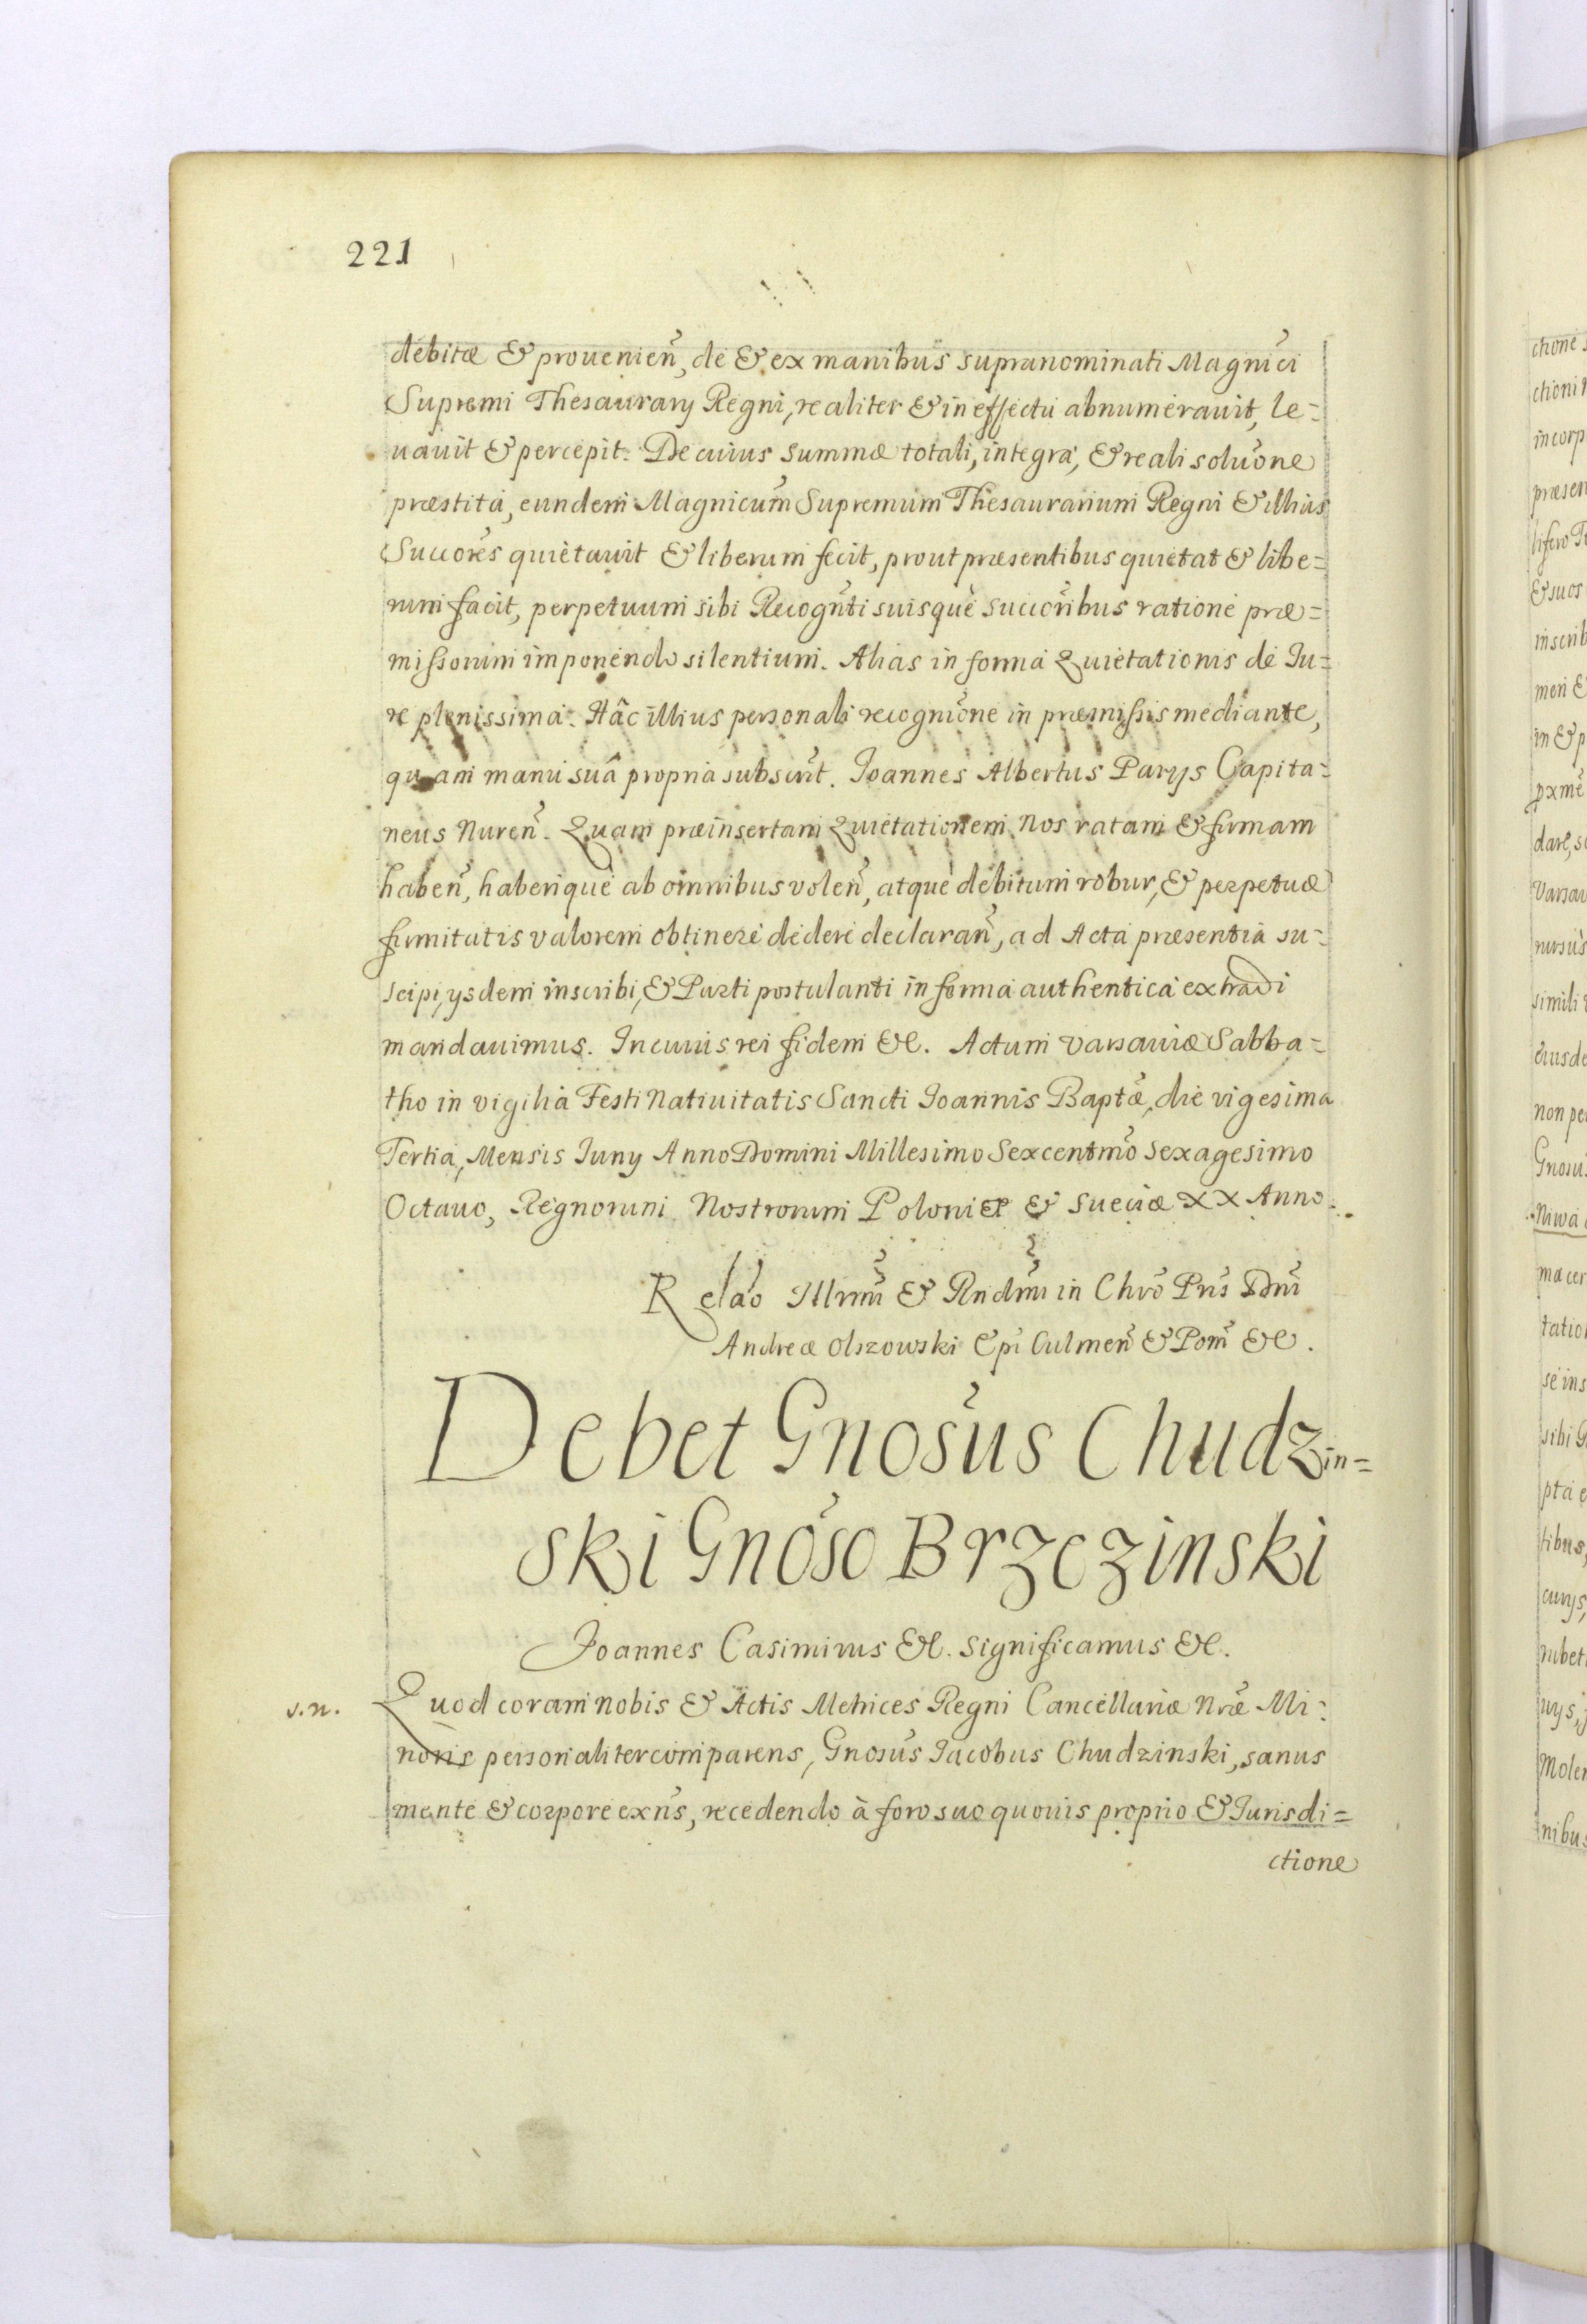 221
debitæ & prouenień, de & ex manibus supranominati Magnici
Supremi Thesaurarÿ Regni, realiter & in effectu abnumerauit, le=
uauit & percepit. De cuius summæ totali, integra, & reali soluōne
præstita, eundem Magnicum Supremum Thesaurarium Regni & illius
Succores quietauit & liberum fecit, prout præsentibus quietat & libe=
rum facit, perpetuum sibi Recognti suisque succoribus ratione præ=
missorum imponendo silentium. Alias in forma Quietationis de Ju=
re plenissima. Hâc illius personali recognione in præmissis mediante,
quam manu suâ propria subscrit. Joannes Albertus Parÿs Capita=
neus Nureń. Quam præinsertam Quietationem Nos ratam & firmam
habeń, haberique ab omnibus voleń, atque debitum robur, & perpetuæ
firmitatis valorem obtinere debere declarań, ad Acta præsentia su=
scipi, ÿsdem inscribi, & Parti postulanti in forma authentica extradi
mandauimus. In cuius rei fidem &c. Actum Varsauiæ Sabba=
tho in vigilia Festi Natiuitatis Sancti Joannis Baptæ, die vigesima
Tertia, Mensis Junÿ Anno Domini Millesimo Sexcentmo sexagesimo
Octauo, Regnorum Nostrorum Poloniæ & Sueciæ XX Anno.
Relao Illrmi & Rndmi in Chro Pris Dni
Andreæ Olszowski Epi Culmeń & Pom &c.
Debet Gnosus Chudzin=
ski Gnoso Brzezinski
Joannes Casimirus &c. significamus &c.
s.n.
Quod coram nobis & Actis Metrices Regni Cancellariæ Nræ Mi=
noris personaliter comparens, Gnosus Jacobus Chudzinski, sanus
mente & corpore exns, recedendo à foro suo quouis proprio & Jurisdi=
ctione